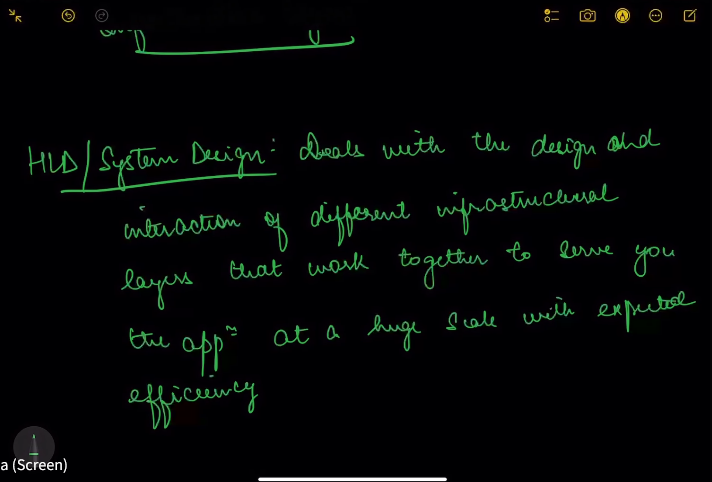 HLD/System Design: Deals with the design and
interaction of different infrastructural
layers that work together to serve you
the appⁿ at a huge scale with expected
efficiency
a (Screen)